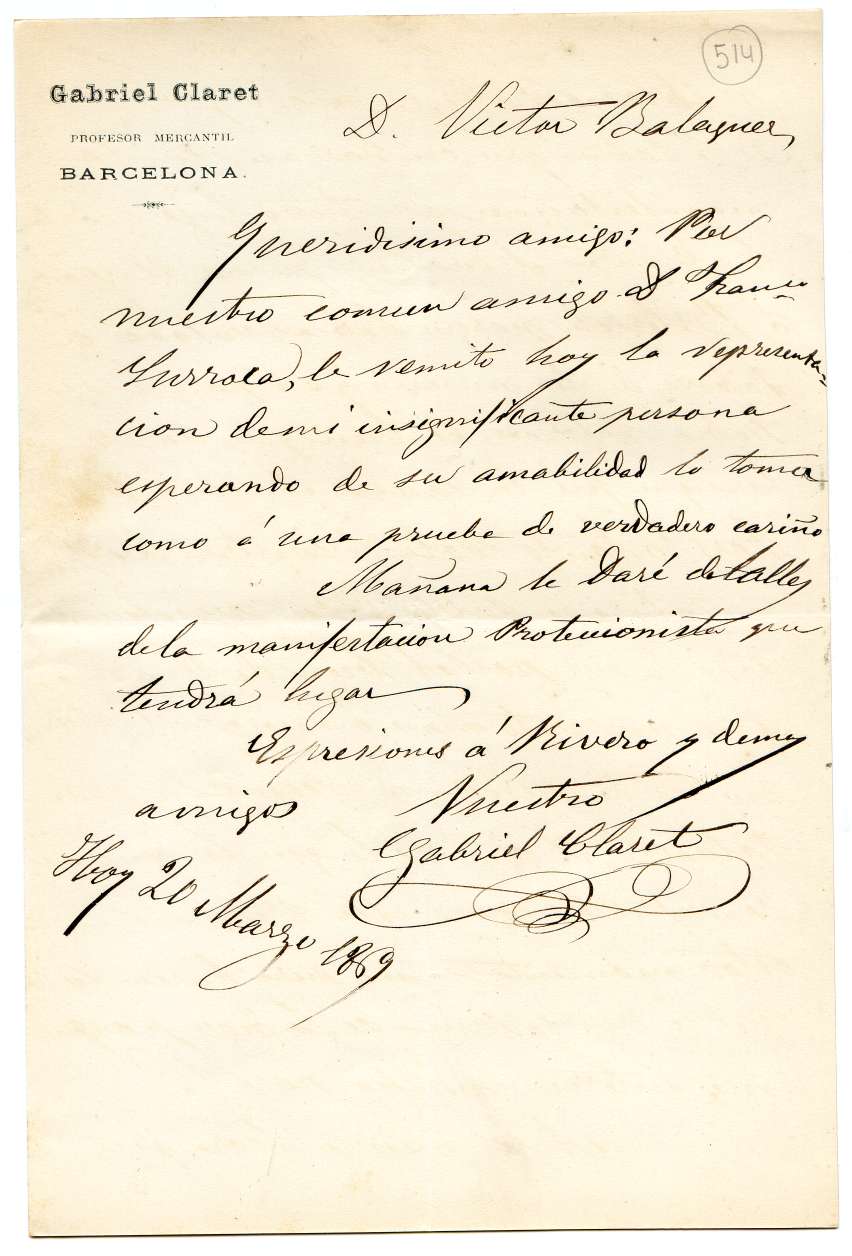 514
Gabriel Claret
PROFESOR MERCANTIL
BARCELONA.
D. Victor Balaguer,
Queridisimo amigo: Por
nuestro comun amigo D Franco
Surroca, le remito hoy la representa-
cion de mi insignificante persona
esperando de su amabilidad lo tomera
como á una prueba de verdadero cariño
Mañana le Daré detalles
de la manifestacion Proteccionista que
tendrá lugar
Espresiones á Rivero y demas
amigos Vuestro
Gabriel Claret
Hoy 20 Marzo 1869